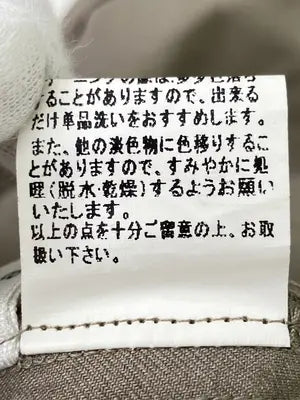 ーニングの際は、多少色落ち
することがありますので、出来る
だけ単品洗いをおすすめします。
また、他の淡色物に色移りするこ
とがありますので、すみやかに処
理(脱水・乾燥)するようお願い
いたします。
以上の点を十分ご留意の上、お取
扱い下さい。